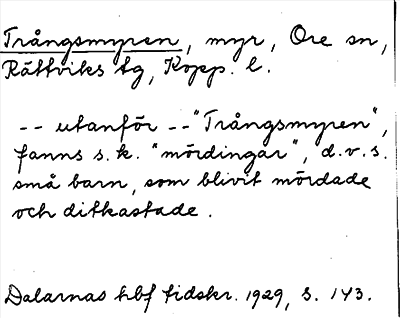 Trångsmyren, myr, Ore sn,
Rättviks tg, Kopp. l.
-- utanför -- "Trångsmyren",
fanns s.k. "mördingar", d.v.s.
små barn, som blivit mördade
och ditkastade.
Dalarnas hbf tidskr. 1929, s. 143.